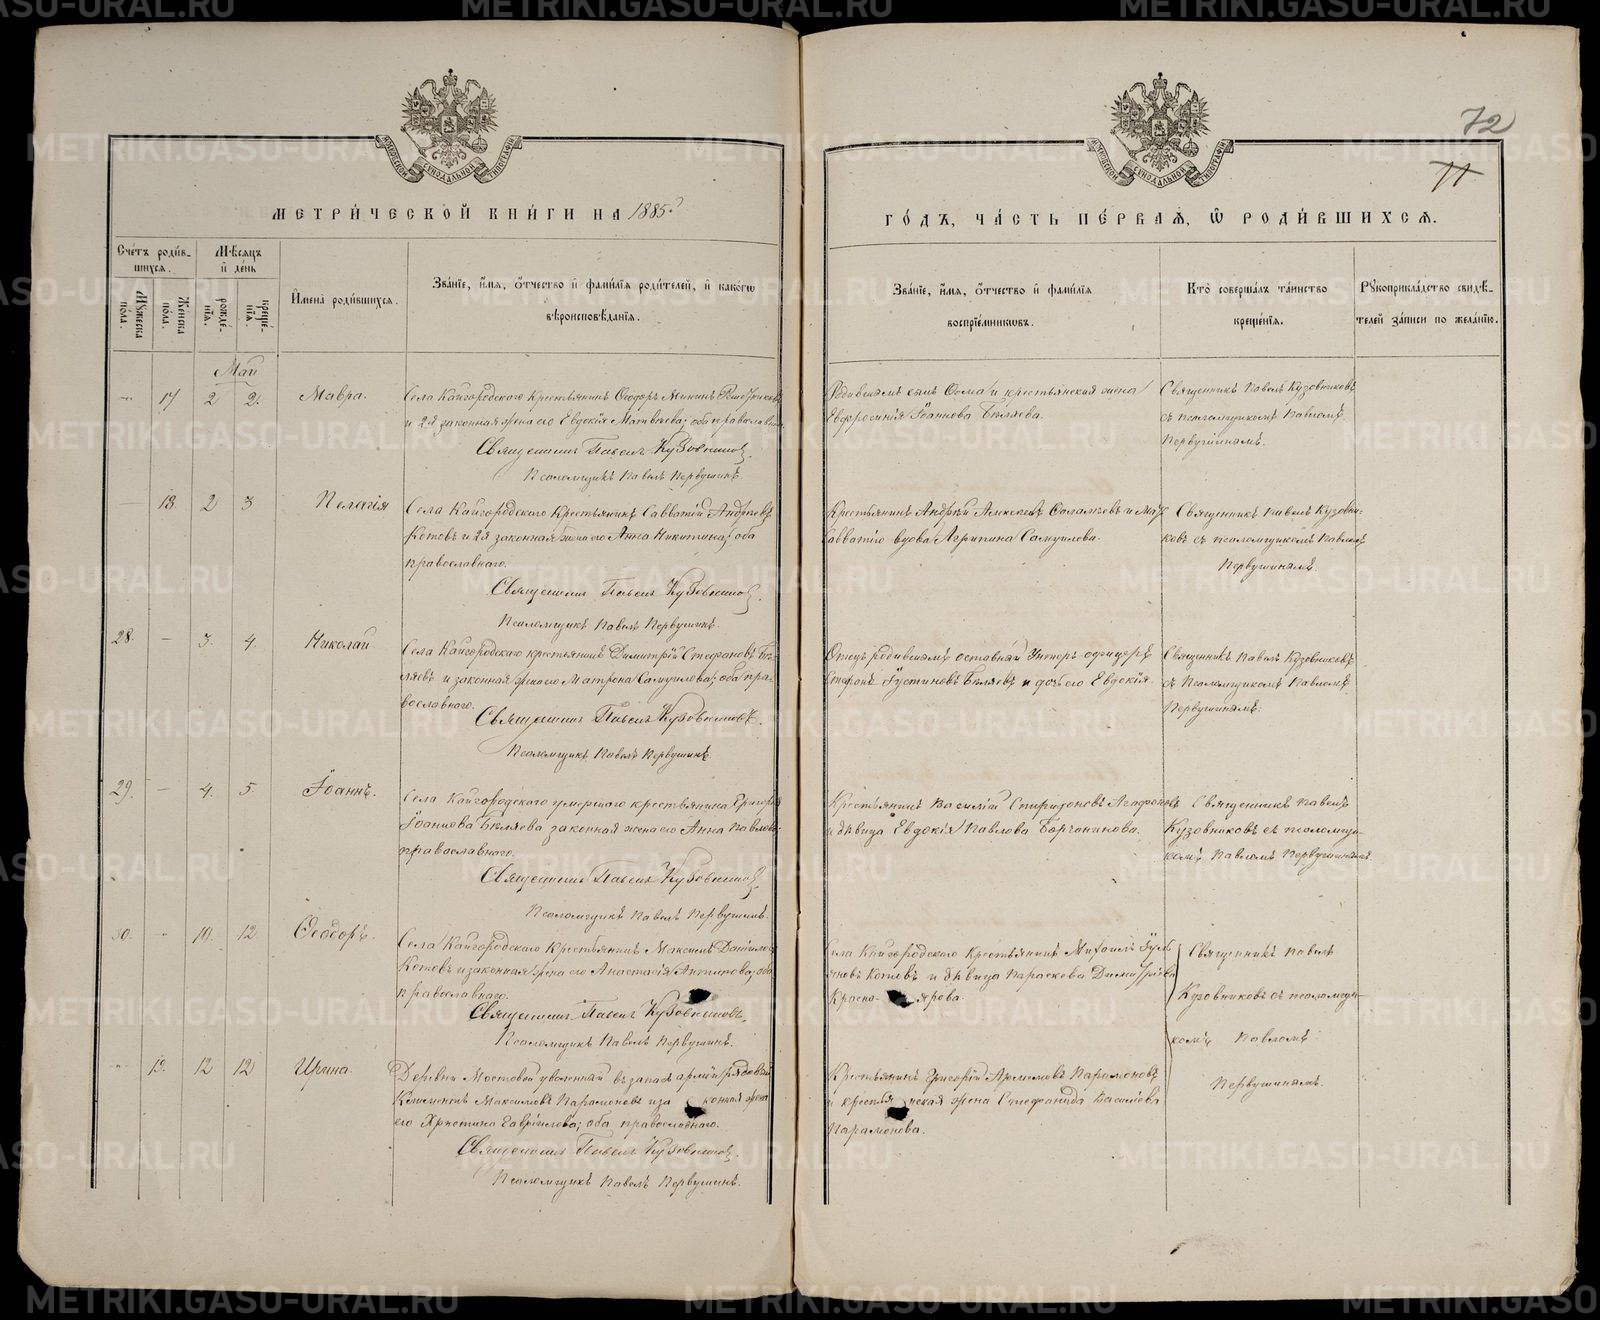 72
11
МЕТРИ́ЧЕСКОЙ КНИ́ГИ НА 1885й
ГО́ДЪ, ЧА́СТЬ ПЕ́РВАѦ, Ѽ РОДИ́ВШИХСѦ.
Сче́тъ роди́в-
шихся.
Мѣ́сяцъ
и̂ де́нь
Мꙋ́жеска
по́ла.
Же́нска
по́ла.
рожде́-
нїя.
креще́-
нїя.
И҆мена̀ роди́вшихся.
Зва́нїе, и҆́мя, ѻ҆́тчество и҆ фами́лїя роди́телей, и҆ како́гѡ
вѣроисповѣ́данїя.
Зва́нїе, и҆́мя, ѻ҆́тчество и҆ фами́лїя
воспрїе́мникѡвъ.
Кто̀ соверша́лъ та́инство
креще́нїя.
Рꙋкоприкла́дство свидѣ́-
телей за́писи по жела́нїю.
Май
17 2 2. Мавра.
Села Кайгородскаго Крестьянинъ Ѳеодоръ Мининъ
и 2я законная жена его Евдокія Матвѣева; оба православн.
Священникъ Павелъ Кузовниковъ.
Псаломщикъ Павелъ Первушинъ.
Родившаго сынъ Ѳома и крестьянская жена
Евфросинія Іоаннова Бѣляева.
Священникъ Павелъ Кузовниковъ
съ псаломщикомъ Павломъ
Первушинымъ.
18. 2 3 Пелагія
Села Кайгородскаго Крестьянинъ Савватій Андреевъ
Котовъ и 2я законная жена его Анна Никитина; оба
православнаго.
Священникъ Павелъ Кузовниковъ.
Псаломщикъ Павелъ Первушинъ.
Крестьянинъ Андрей Алексеевъ
вдова Агрипина Самуилова.
Священникъ Павелъ Кузовни-
ковъ съ псаломщикомъ Павломъ
Первушинымъ.
28. — 3. 4. Николай
Села Кайгородскаго крестьянинъ Димитрій Стефановъ Бѣ-
ляевъ и законная жена его Матрона Самуилова; оба пра-
вославнаго.
Священникъ Павелъ Кузовниковъ.
Псаломщикъ Павелъ Первушинъ.
Отецъ родившаго отставной Унтеръ-офицеръ
Стефанъ Іустиновъ Бѣляевъ и дочь его Евдокія.
Священникъ Павелъ Кузовниковъ
съ Псаломщикомъ Павломъ
Первушинымъ.
29. — 4. 5. Іоаннъ.
Села Кайгородскаго умершаго крестьянина Григорія
Іоаннова Бѣляева законная жена его Анна Павлова;
православнаго.
Священникъ Павелъ Кузовниковъ.
Псаломщикъ Павелъ Первушинъ.
Крестьянинъ Василій Спиридоновъ Агафоновъ
и дѣвица Евдокія Павлова Борчанинова.
Священникъ Павелъ
Кузовниковъ съ псаломщи-
комъ Павломъ Первушинымъ.
30. — 10. 12 Ѳеодоръ.
Села Кайгородскаго Крестьянинъ Максимъ Даниловъ
Котовъ и законная жена его Анастасія Антипова; оба
православнаго.
Священникъ Павелъ Кузовниковъ.
Псаломщикъ Павелъ Первушинъ.
Села Кайгородскаго Крестьянинъ Михаилъ Іуль-
яновъ Котовъ и дѣвица Параскева Димитріева
Красно- ярова.
Священникъ Павелъ
Кузовниковъ съ псаломщи-
комъ Павломъ
Первушинымъ.
19. 12 12 Ирина.
Деревни Мостовой уволенный въ запасъ арміи рядовой
Климентъ Максимовъ Парамоновъ и за конная жена
его Христина Гавріилова; оба православнаго.
Священникъ Павелъ Кузовниковъ.
Псаломщикъ Павелъ Первушинъ.
Крестьянинъ Григорій Артемовъ Парамоновъ
и кресть нская жена Стефанида Васильева
Парамонова.
METRIKI.GASO-URAL.RU